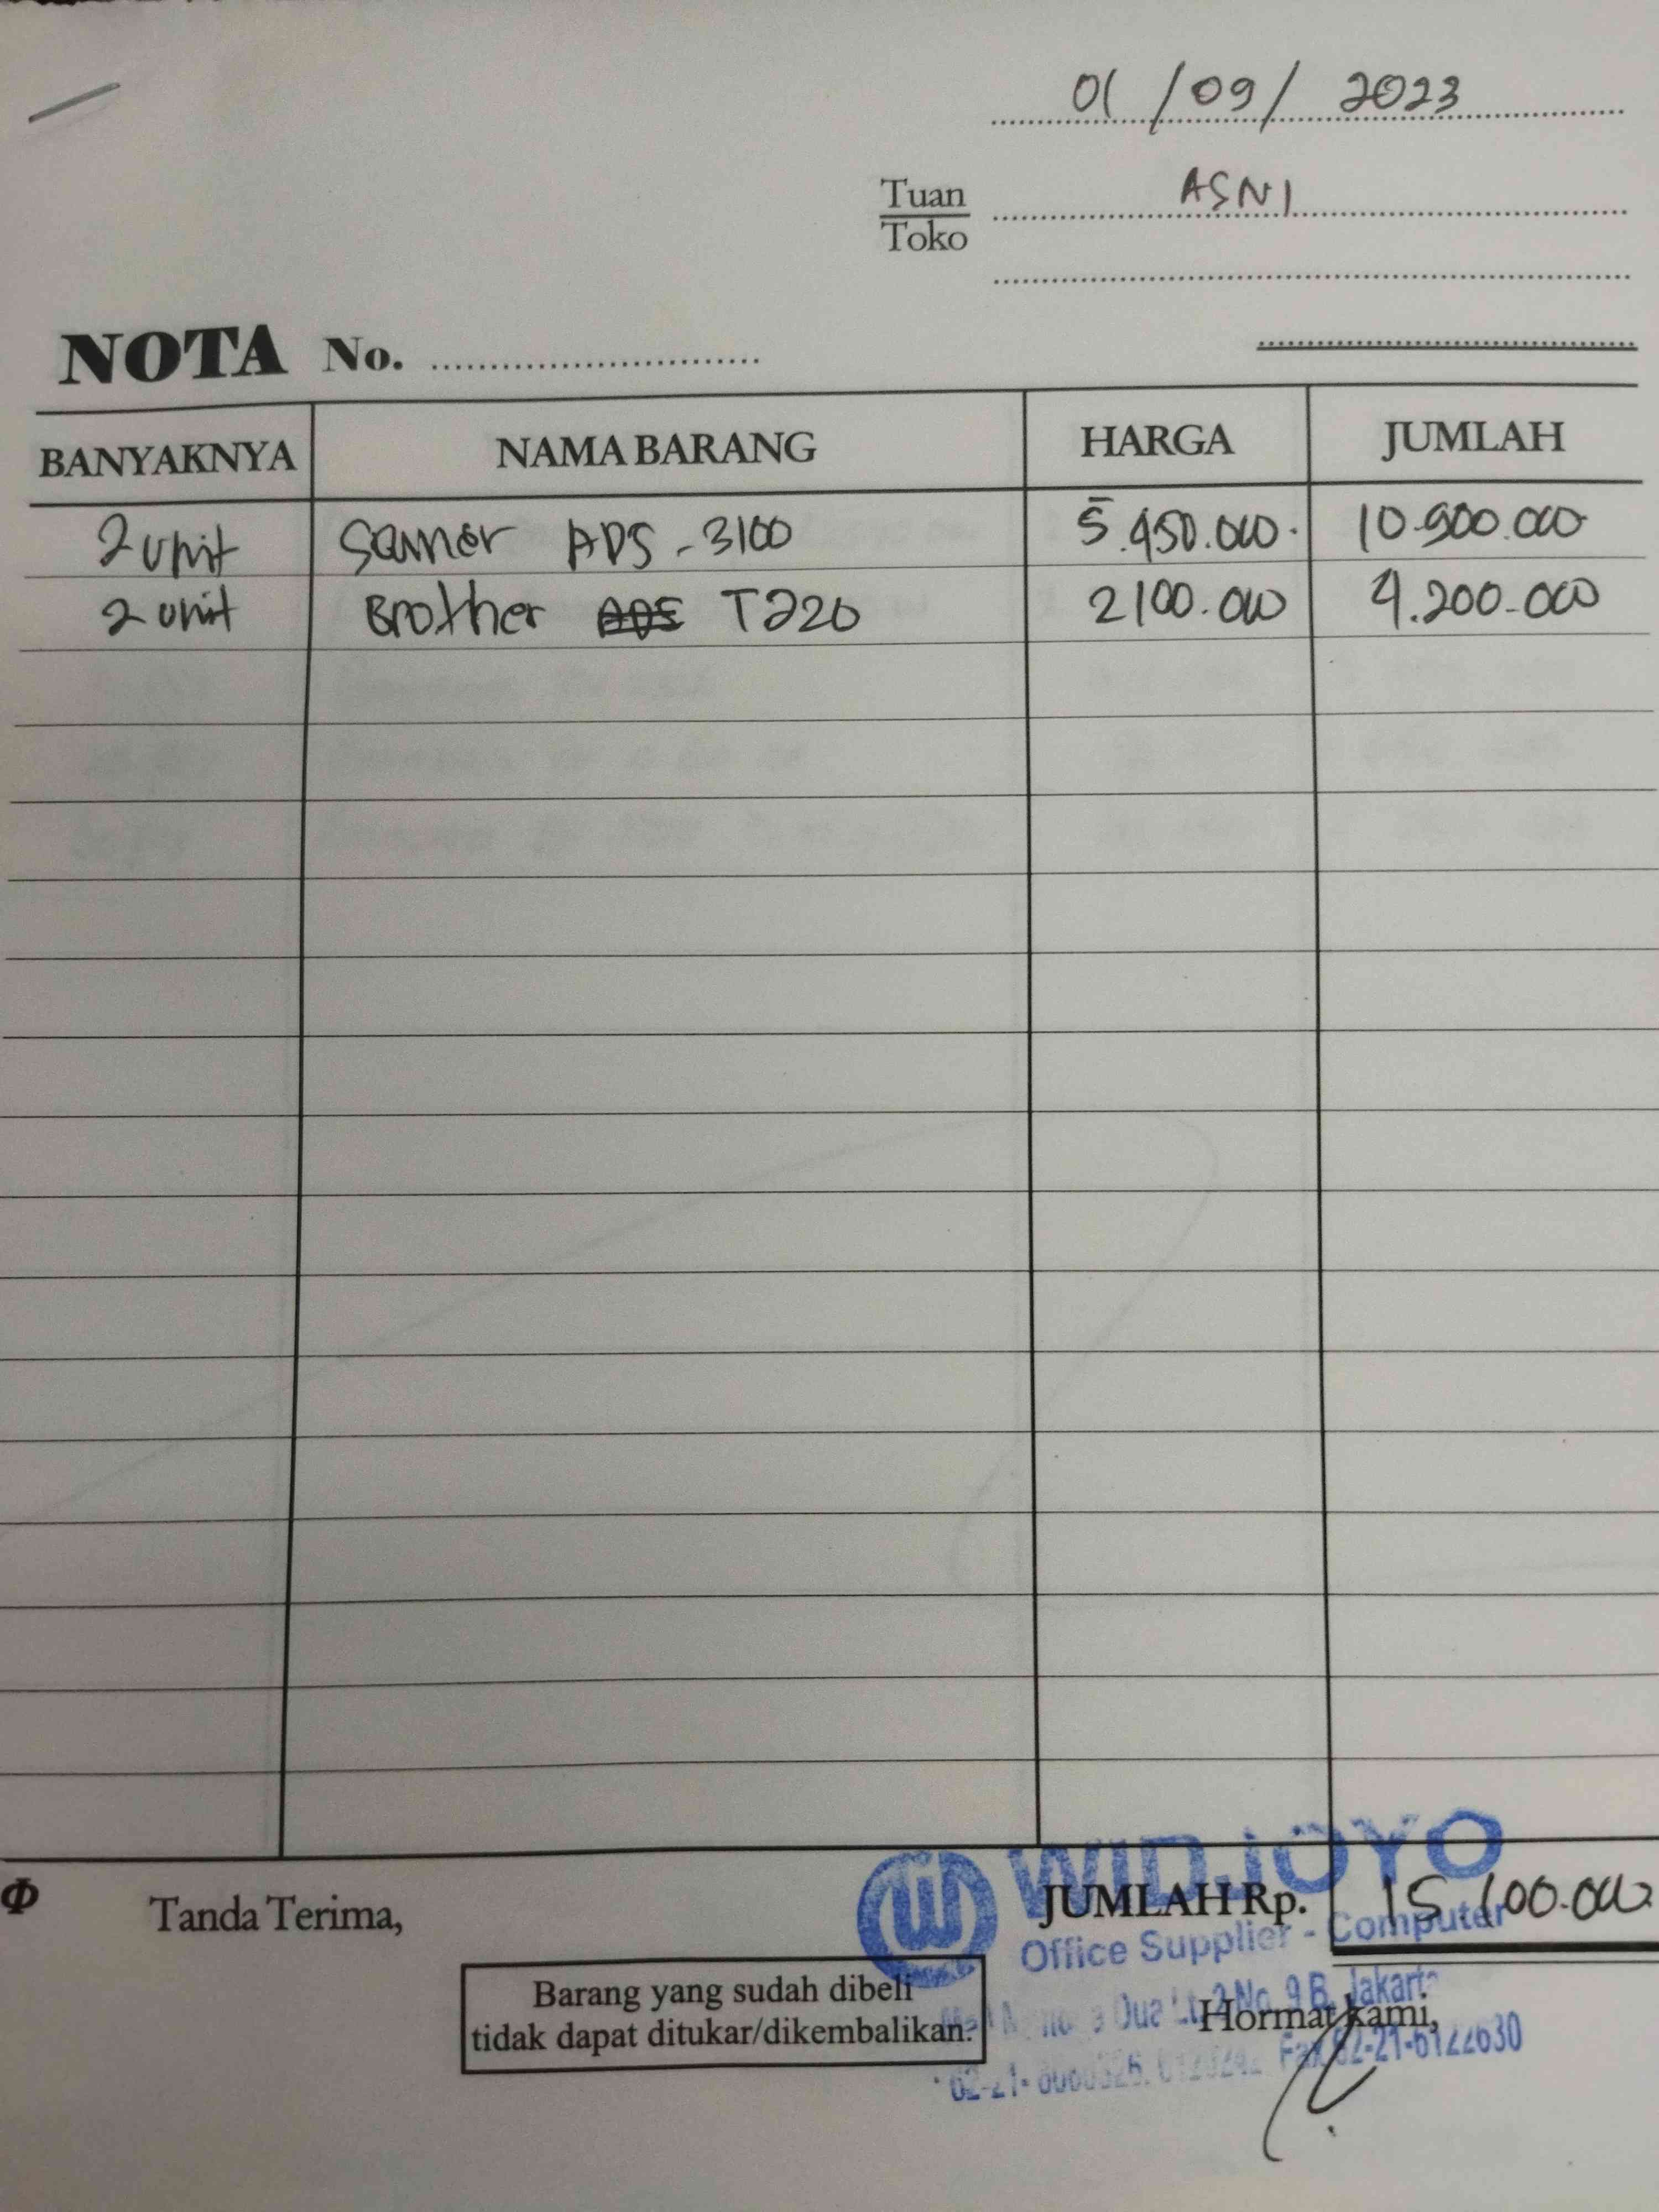 01/09/2023
Tuan
Toko
ASNI
NOTA No.
BANYAKNYA NAMA BARANG HARGA JUMLAH
2 unit Scanner ADS-3100 5.450.000 10.900.000
2 unit Brother T220 2100.000 4.200.000
WIDJOYO
Tanda Terima, JUMLAH Rp. 15.100.000
Office Supplier - Computer
Barang yang sudah dibeli
tidak dapat ditukar/dikembalikan.
Dua Lt. 2 No. 9 B, Jakarta
Hormat kami,
Fax 62-21-6122630